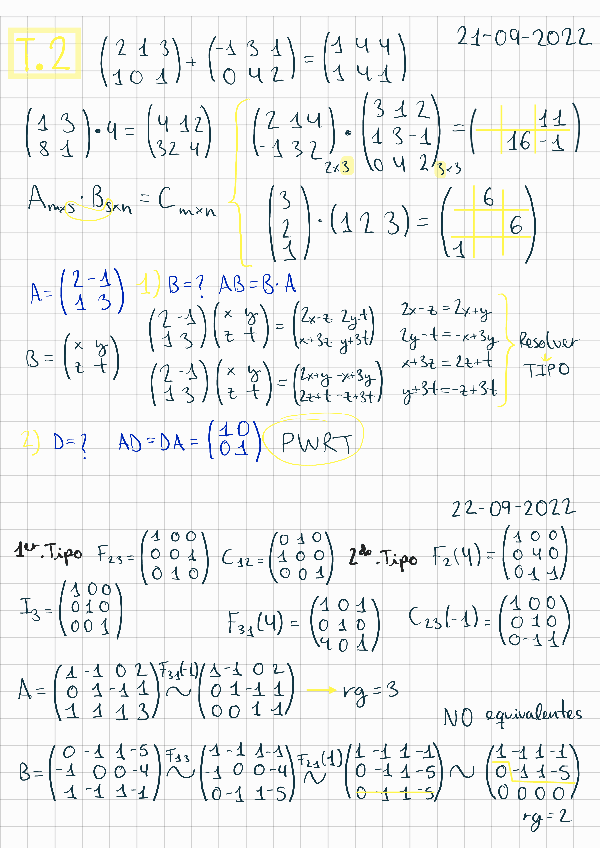 T.2 (2 1 3 / 1 0 1) + (-1 3 1 / 0 4 2) = (1 4 4 / 1 4 1) 21-09-2022
(1 3 / 8 1) · 4 = (4 12 / 32 4) (2 1 4 / -1 3 2) 2x3 · (3 1 2 / 1 3 -1 / 0 4 2) 3x3 = ( 11 / 16 -1)
A mxs · B sxn = C mxn (3 / 2 / 1) · (1 2 3) = ( 6 / 6 / 1 )
A = (2 -1 / 1 3) 1) B = ? AB = B·A
B = (x y / z t) (2 -1 / 1 3) (x y / z t) = (2x-z 2y-t / x+3z y+3t)
(2 -1 / 1 3) (x y / z t) = (2x+y -x+3y / 2z+t -z+3t)
2x-z = 2x+y
2y-t = -x+3y
x+3z = 2z+t
y+3t = -z+3t
Resolver
TIPO
2) D = ? AD = DA = (1 0 / 0 1) PWRT
22-09-2022
1er. Tipo F23 = (1 0 0 / 0 0 1 / 0 1 0) C12 = (0 1 0 / 1 0 0 / 0 0 1) 2do. Tipo F2(4) = (1 0 0 / 0 4 0 / 0 1 1)
I3 = (1 0 0 / 0 1 0 / 0 0 1) F31(4) = (1 0 1 / 0 1 0 / 4 0 1) C23(-1) = (1 0 0 / 0 1 0 / 0 -1 1)
A = (1 -1 0 2 / 0 1 -1 1 / 1 1 1 3) F31(-1) ~ (1 -1 0 2 / 0 1 -1 1 / 0 0 1 1) → rg = 3
NO equivalentes
B = (0 -1 1 -5 / -1 0 0 -4 / 1 -1 1 -1) F13 ~ (1 -1 1 -1 / -1 0 0 -4 / 0 -1 1 -5) F21(1) ~ (1 -1 1 -1 / 0 -1 1 -5 / 0 -1 1 -5) ~ (1 -1 1 -1 / 0 -1 1 -5 / 0 0 0 0)
rg = 2